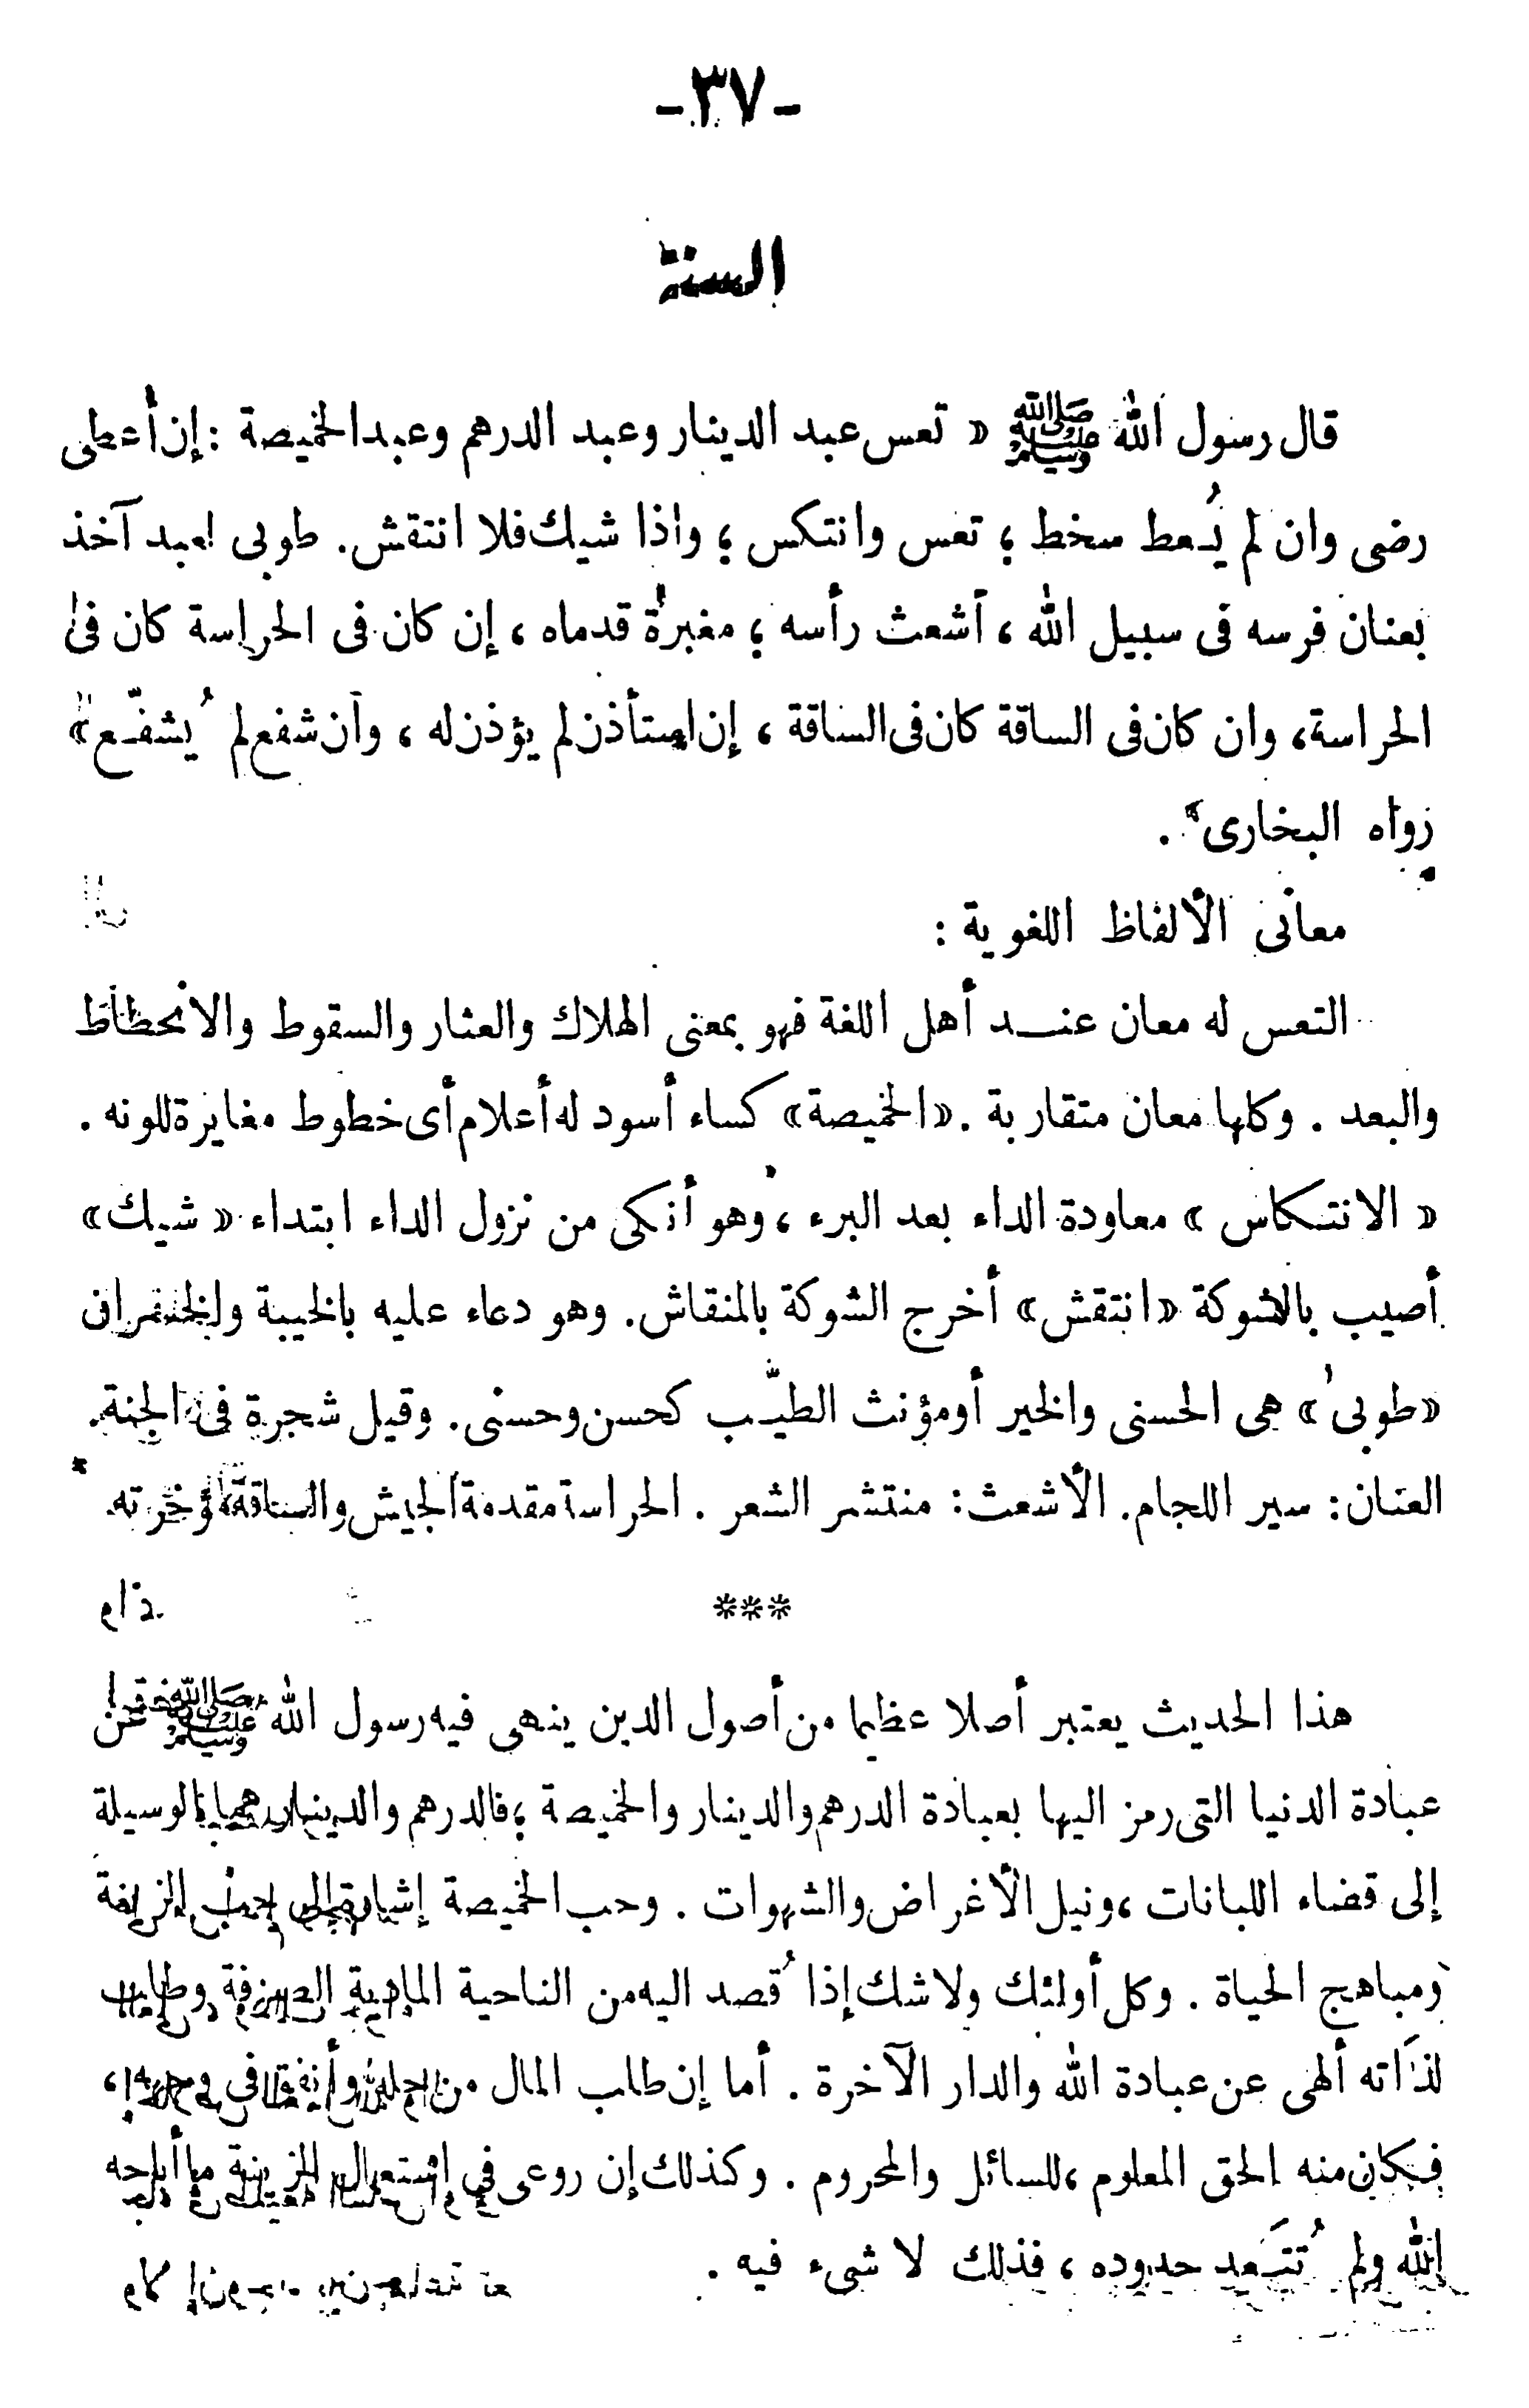 -٣٧-
السنة
قال رسول الله ﷺ « تعس عبد الدينار وعبد الدرهم وعبد الخميصة : إن أعطى
رضى وان لم يُعط سخط ؛ تعس وانتكس ؛ واذا شيك فلا انتقش . طوبى لعبد آخذ
بعنان فرسه فى سبيل الله ، أشعث رأسه ؛ مغبرة قدماه ، إن كان فى الحراسة كان فى
الحراسة ، وان كان فى الساقة كان فى الساقة ، إن استأذن لم يؤذن له ، وان شفع لم يُشفّع »
رواه البخارى .
معانى الألفاظ اللغوية :
التعس له معان عند أهل اللغة فهو بمعنى الهلاك والعثار والسقوط والانحطاط
والبعد . وكلها معان متقاربة . «الخميصة» كساء أسود له أعلام أى خطوط مغايرة للونه .
« الانتكاس » معاودة الداء بعد البرء ، وهو أنكى من نزول الداء ابتداء « شيك »
أصيب بالشوكة «انتقش» أخرج الشوكة بالمنقاش . وهو دعاء عليه بالخيبة والخسران
«طوبى» هى الحسنى والخير أو مؤنث الطيّب كحسن وحسنى . وقيل شجرة فى الجنة .
العنان : سير اللجام . الأشعث : منتشر الشعر . الحراسة مقدمة الجيش والساقة مؤخرته .
***
هذا الحديث يعتبر أصلا عظيما من أصول الدين ينهى فيه رسول الله ﷺ عن
عبادة الدنيا التى رمز اليها بعبادة الدرهم والدينار والخميصة ؛ فالدرهم والدينار هما الوسيلة
إلى قضاء اللبانات ، ونيل الأغراض والشهوات . وحب الخميصة إشارة إلى حب الزينة
ومباهج الحياة . وكل أولئك ولا شك إذا قُصد اليه من الناحية المادية الصرفة وطلب
لذاته ألهى عن عبادة الله والدار الآخرة . أما إن طلب المال من حله وأنفق فى
فكان منه الحق المعلوم ، للسائل والمحروم . وكذلك إن روعى فى استعمال الزينة ما أباحه
الله ولم تُتَعد حدوده ، فذلك لا شىء فيه .